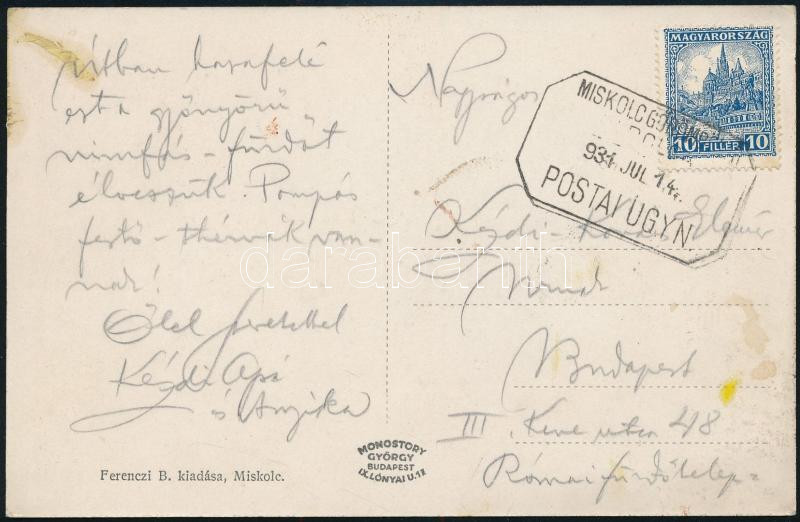 útban hazafelé
ezt a gyönyörű
nimfás-fürdőt
élvezzük. Pompás
festő-témák van-
nak!
Ölel szeretettel
Kézdi Apá
és Anzika
Ferenczi B. kiadása, Miskolc.
MONOSTORY
GYÖRGY
BUDAPEST
IX. LÓNYAI U. 17
MAGYARORSZÁG
10 FILLÉR 10
MISKOLC
931 JUL 14
POSTAI ÜGYN.
Nagyságos
Kézdi-Kovács Elemér
Budapest
III. Keve utca 48
Rómaifürdőtelep
darabanth